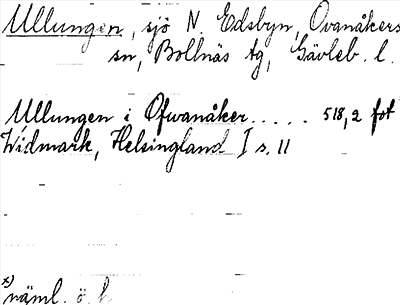 Ullungen, sjö N. Edsbyn, Ovanåkers
sn, Bollnäs tg, Gävleb. l.
Ullungen i Ofwanåker..... 518,2 fot
Widmark, Helsingland I s. 11
x) näml. ö. h